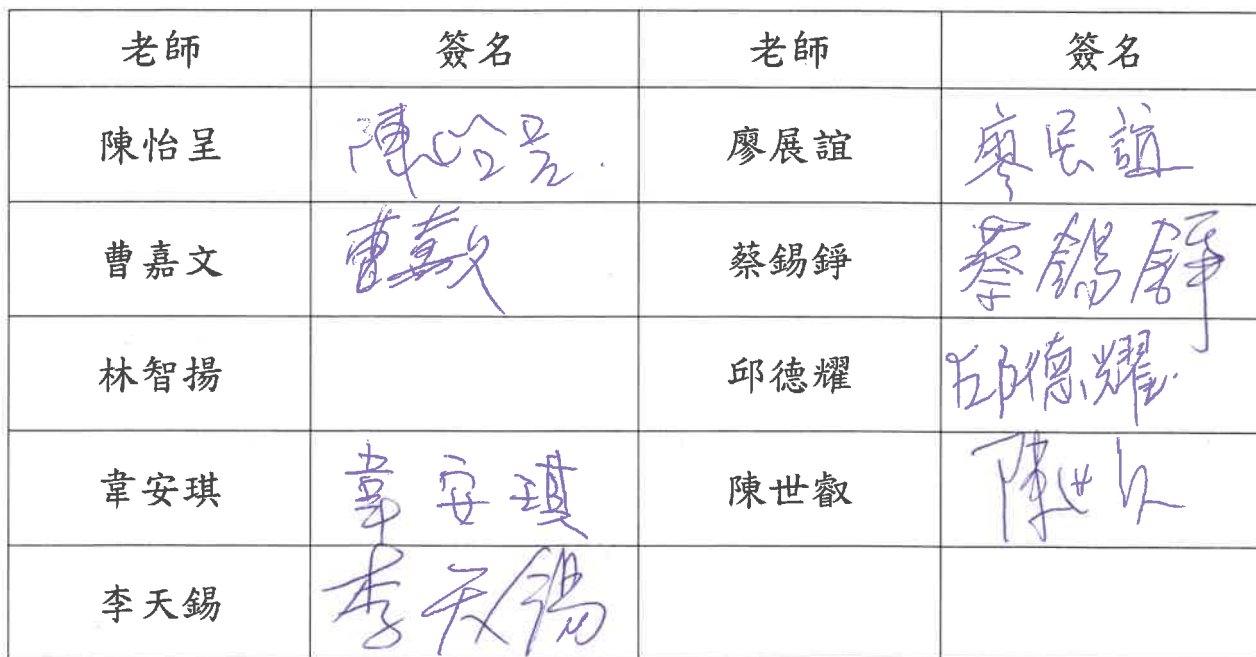 老師 簽名 老師 簽名
陳怡呈 陳怡呈 廖展誼 廖展誼
曹嘉文 曹嘉文 蔡錫錚 蔡錫錚
林智揚 邱德耀 邱德耀
韋安琪 韋安琪 陳世叡 陳世
李天錫 李天錫